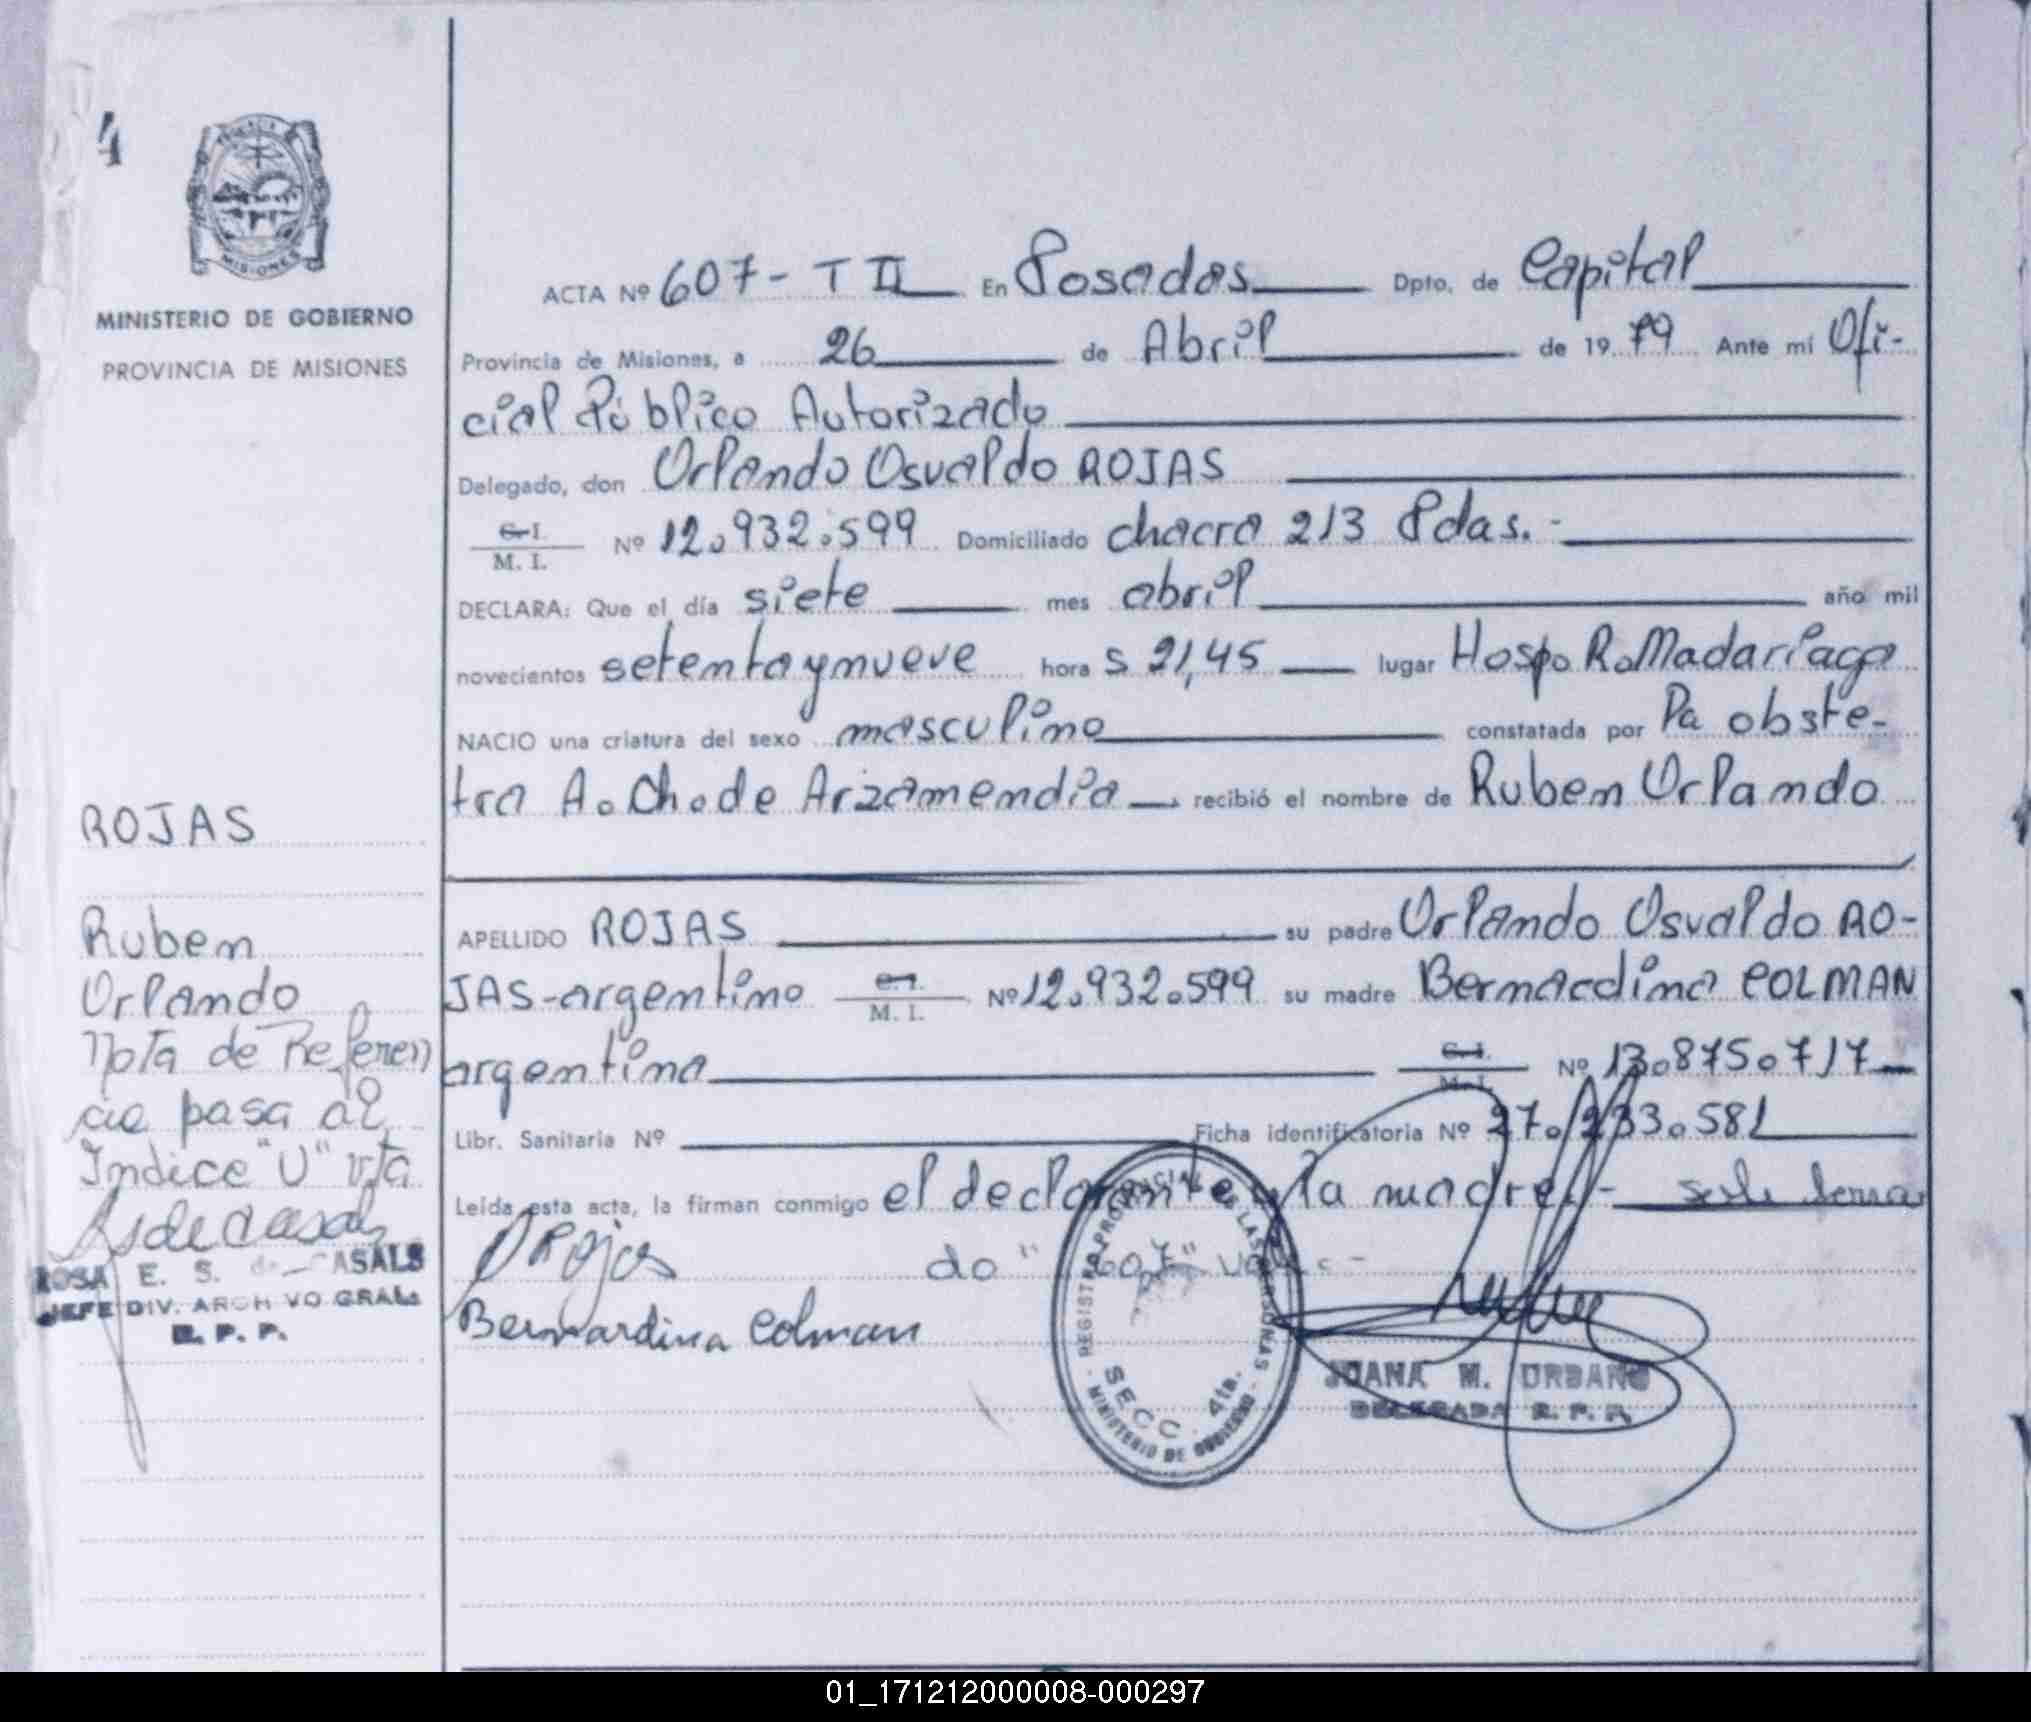 4
MISIONES
MINISTERIO DE GOBIERNO
PROVINCIA DE MISIONES
ACTA Nº 607 - T II En Posadas Dpto. de Capital
Provincia de Misiones, a 26 de Abril de 1979 Ante mí Ofi-
cial Público Autorizado
Delegado, don Orlando Osvaldo ROJAS
C. I.
M. I. Nº 12.932.599 Domiciliado chacra 213 Pdas. -
DECLARA: Que el día siete mes abril año mil
novecientos setenta y nueve hora s 21,45 lugar Hosp. R. Madariaga
NACIO una criatura del sexo masculino constatada por la obste-
tra A. Ch. de Arzamendia recibió el nombre de Ruben Orlando
APELLIDO ROJAS su padre Orlando Osvaldo RO-
JAS - argentino M. I. Nº 12.932.599 su madre Bernardina COLMAN
argentina C. I. M. I. Nº 13.875.717
Libr. Sanitaria Nº Ficha identificatoria Nº 27.233.581
Leída esta acta, la firman conmigo el declarante y la madre. -
ORojas do "607" -
Bernardina Colman
REGISTRO PROVINCIAL DE LAS PERSONAS
SECC. 4ta.
MINISTERIO DE GOBIERNO
JUANA M. URBANO
DELEGADA R. P. P.
ROJAS
Ruben
Orlando
Nota de Referen
cia pasa al
Indice "U" vta
ROSA E. S. de CASALS
JEFE DIV. ARCHIVO GRAL.
R. P. P.
01_171212000008-000297